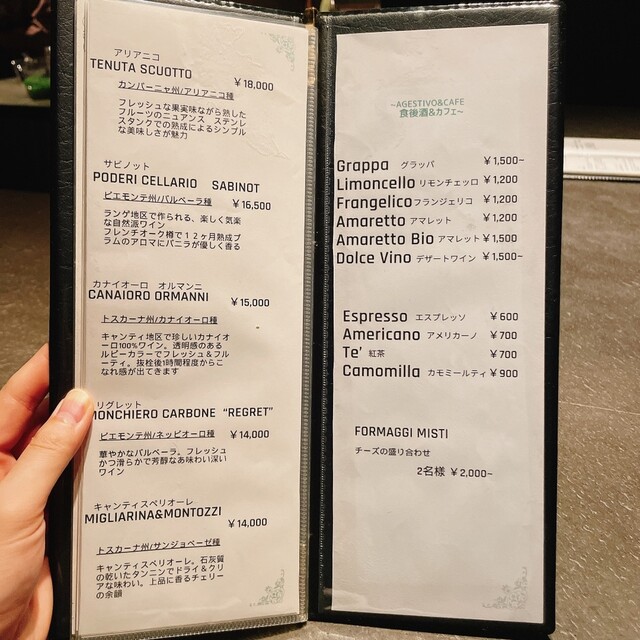 アリアニコ
TENUTA SCUOTTO
￥18,000
カンパーニャ州/アリアニコ種
フレッシュな果実味ながら熟した
フルーツのニュアンス ステンレ
スタンクでの熟成によるシンプル
な美味しさが魅力
サビノット
PODERI CELLARIO SABINOT
ピエモンテ州/バルベーラ種 ￥16,500
ランゲ地区で作られる、楽しく気楽
な自然派ワイン
フレンチオーク樽で１２ヶ月熟成プ
ラムのアロマにバニラが優しく香る
カナイオーロ オルマンニ
CANAIORO ORMANNI
￥15,000
トスカーナ州/カナイオーロ種
キャンティ地区で珍しいカナイオ
ーロ100%ワイン。透明感のある
ルビーカラーでフレッシュ＆フル
ーティ。抜栓後1時間程度からこ
なれ感が出てきます
リグレット
MONCHIERO CARBONE “REGRET”
ピエモンテ州/ネッビオーロ種 ￥14,000
華やかなバルベーラ。フレッシュ
かつ滑らかで芳醇なあ味わい深い
ワイン
キャンティスペリオーレ
MIGLIARINA&MONTOZZI
￥14,000
トスカーナ州/サンジョベーゼ種
キャンティスペリオーレ。石灰質
の乾いたタンニンでドライ＆クリ
アな味わい。上品に香るチェリー
の余韻
~AGESTIVO&CAFE
食後酒&カフェ~
Grappa グラッパ ￥1,500~
Limoncello リモンチェッロ ￥1,200
Frangelico フランジェリコ ￥1,200
Amaretto アマレット ￥1,200
Amaretto Bio アマレット ￥1,500
Dolce Vino デザートワイン ￥1,500~
Espresso エスプレッソ ￥600
Americano アメリカーノ ￥700
Te’ 紅茶 ￥700
Camomilla カモミールティ ￥900
FORMAGGI MISTI
チーズの盛り合わせ
2名様 ￥2,000~